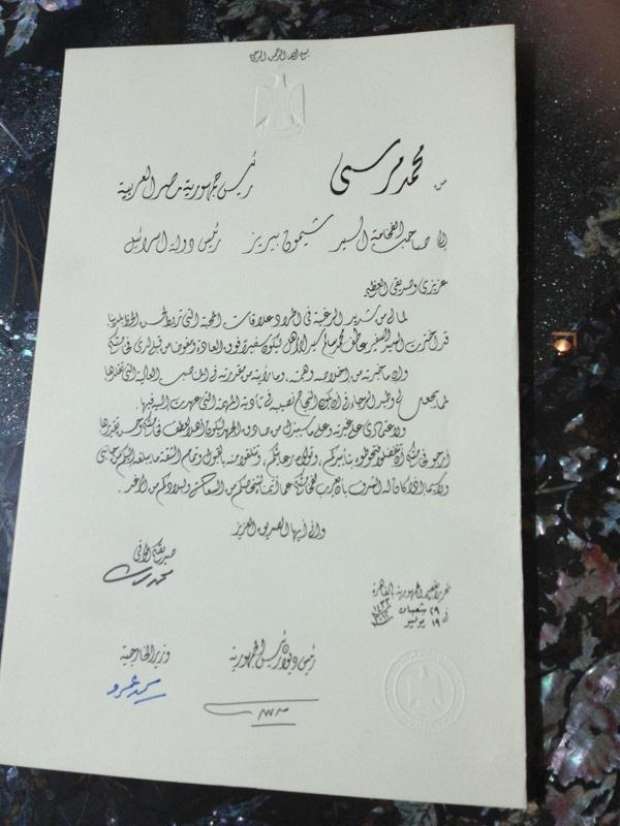 بسم الله الرحمن الرحيم
من محمد مرسي رئيس جمهورية مصر العربية
إلى صاحب الفخامة السيد شيمون بيريز رئيس دولة إسرائيل
عزيزي وصديقي العظيم
لما لي من شديد الرغبة في أن أطرد علاقات المحبة التي تربط لحسن الحظ بلدينا
قد اخترت السيد السفير عاطف محمد سالم سيد الأهل ليكون سفيرا فوق العادة ومفوضا من قبلي لدى فخامتكم
وإن ما خبرته من إخلاصه وهمته وما رأيته من مقدرته في المناصب العالية التي تقلدها
لمما يجعل لي وطيد الرجاء في أن يكون النجاح نصيبه في تأدية المهمة التي عهدت إليه فيها
ولاعتمادي على غيرته وعلى ما سيبذل من صادق الجهد ليكون أهلا لعطف فخامتكم وحسن تقديرها
أرجو من فخامتكم أن تتفضلوا فتحوطوه بتأييدكم وتولوه رعايتكم وتتلقوا منه بالقبول وتمام الثقة ما يبلغه إليكم من جانبي
ولا سيما إذا كان له الشرف بأن يعرب لفخامتكم عما أتمناه لشخصكم من السعادة ولبلادكم من الرغد
وإني أيها الصديق العزيز
صديقكم الوفي
محمد مرسي
تحريرا بقصر الجمهورية بالقاهرة
في ٢٩ شعبان ١٤٣٣
١٩ يوليو ٢٠١٢
رئيس ديوان رئيس الجمهورية
وزير الخارجية
محمد عمرو